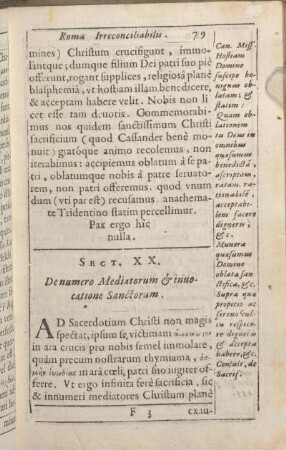 Roma Irreconciliabilis. 79
mines) Christum crucifigunt, immo-
lantque; dumque filium Dei patri suo piè
offerunt, rogant supplices, religiosâ planè
blasphemiâ, vt hostiam illam benedicere,
& acceptam habere velit. Nobis non li
cet esse tam deuotis. Commemorabi-
mus nos quidem sanctissimum Christi
sacrificium (quod Cassander benè mo-
nuit) gratoque animo recolemus, non
iterabimus: accipiemus oblatum à se pa
tri, oblatumque nobis à patre seruato-
rem, non patri offeremus. quod vnum
dum (vti par est) recusamus. anathema-
te Tridentino statim percellimur.
Pax ergo hîc
nulla.
Can. Miss.
Hostiam
Domino
suscipe be-
nignus ob-
latam; &
statim:
Quam ob-
lationem
tu Deus in
omnibus
quæsumus
benedictã,
ascriptam,
ratam, ra-
tionabilẽ,
accepta-
bilem facere
digneris;
&c.
Munera
quæsumus
Domino
oblata san
ctifica, &c.
Supra quæ
propitio ac
sereno vul-
tu respice-
re digneris
& accepta
habere, &c.
Consule, de
Sacrif.
SECT. XX.
De numero Mediatorum & inuo-
catione Sanctorum.
AD Sacerdotium Christi non magis
spectat, ipsum se, victimam
in ara crucis pro nobis semel immolare,
quàm precum nostrarum thymiama,
in arâ cœli, patri suo iugiter of-
ferre. Vt ergo infinita ferè sacrificia, sic
& innumeri mediatores Christum planè
F 3